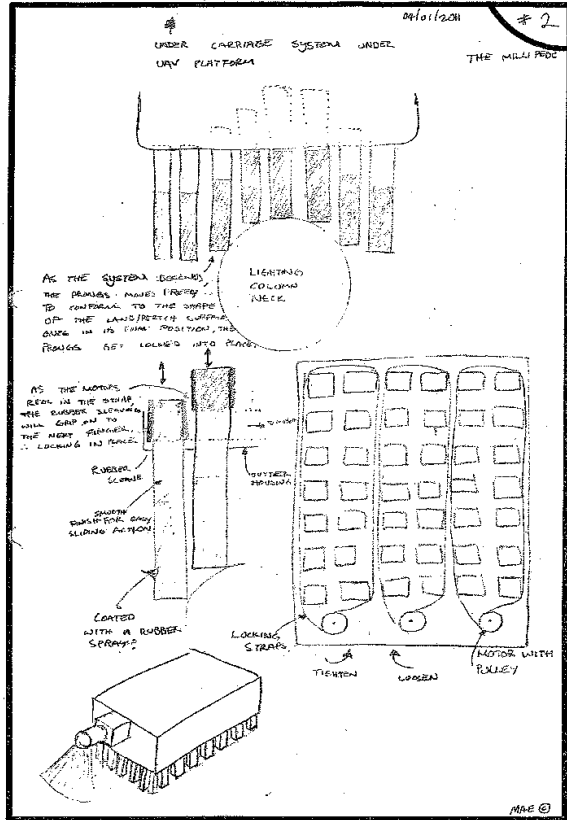 04/01/2011
# 2
UNDER CARRIAGE SYSTEM UNDER
UAV PLATFORM
THE MILLIPEDE
AS THE SYSTEM DESCENDS
THE PRONGS MOVES FREELY
TO CONFORM TO THE SHAPE
OF THE LAND/PERCH SURFACE
ONCE IN ITS FINAL POSITION, THE
PRONGS GET LOCKED INTO PLACE.
LIGHTING
COLUMN
NECK
AS THE MOTORS
REEL IN THE STRAP,
THE RUBBER SLEEVING
WILL GRIP ON TO
THE NEXT
LOCKING IN PLACE.
RUBBER
OUTTER
HOUSING
SMOOTH
FINISH FOR EASY
SLIDING ACTION
COATED
WITH A RUBBER
LOCKING
STRAPS
TIGHTEN
LOOSEN
MOTOR WITH
PULLEY